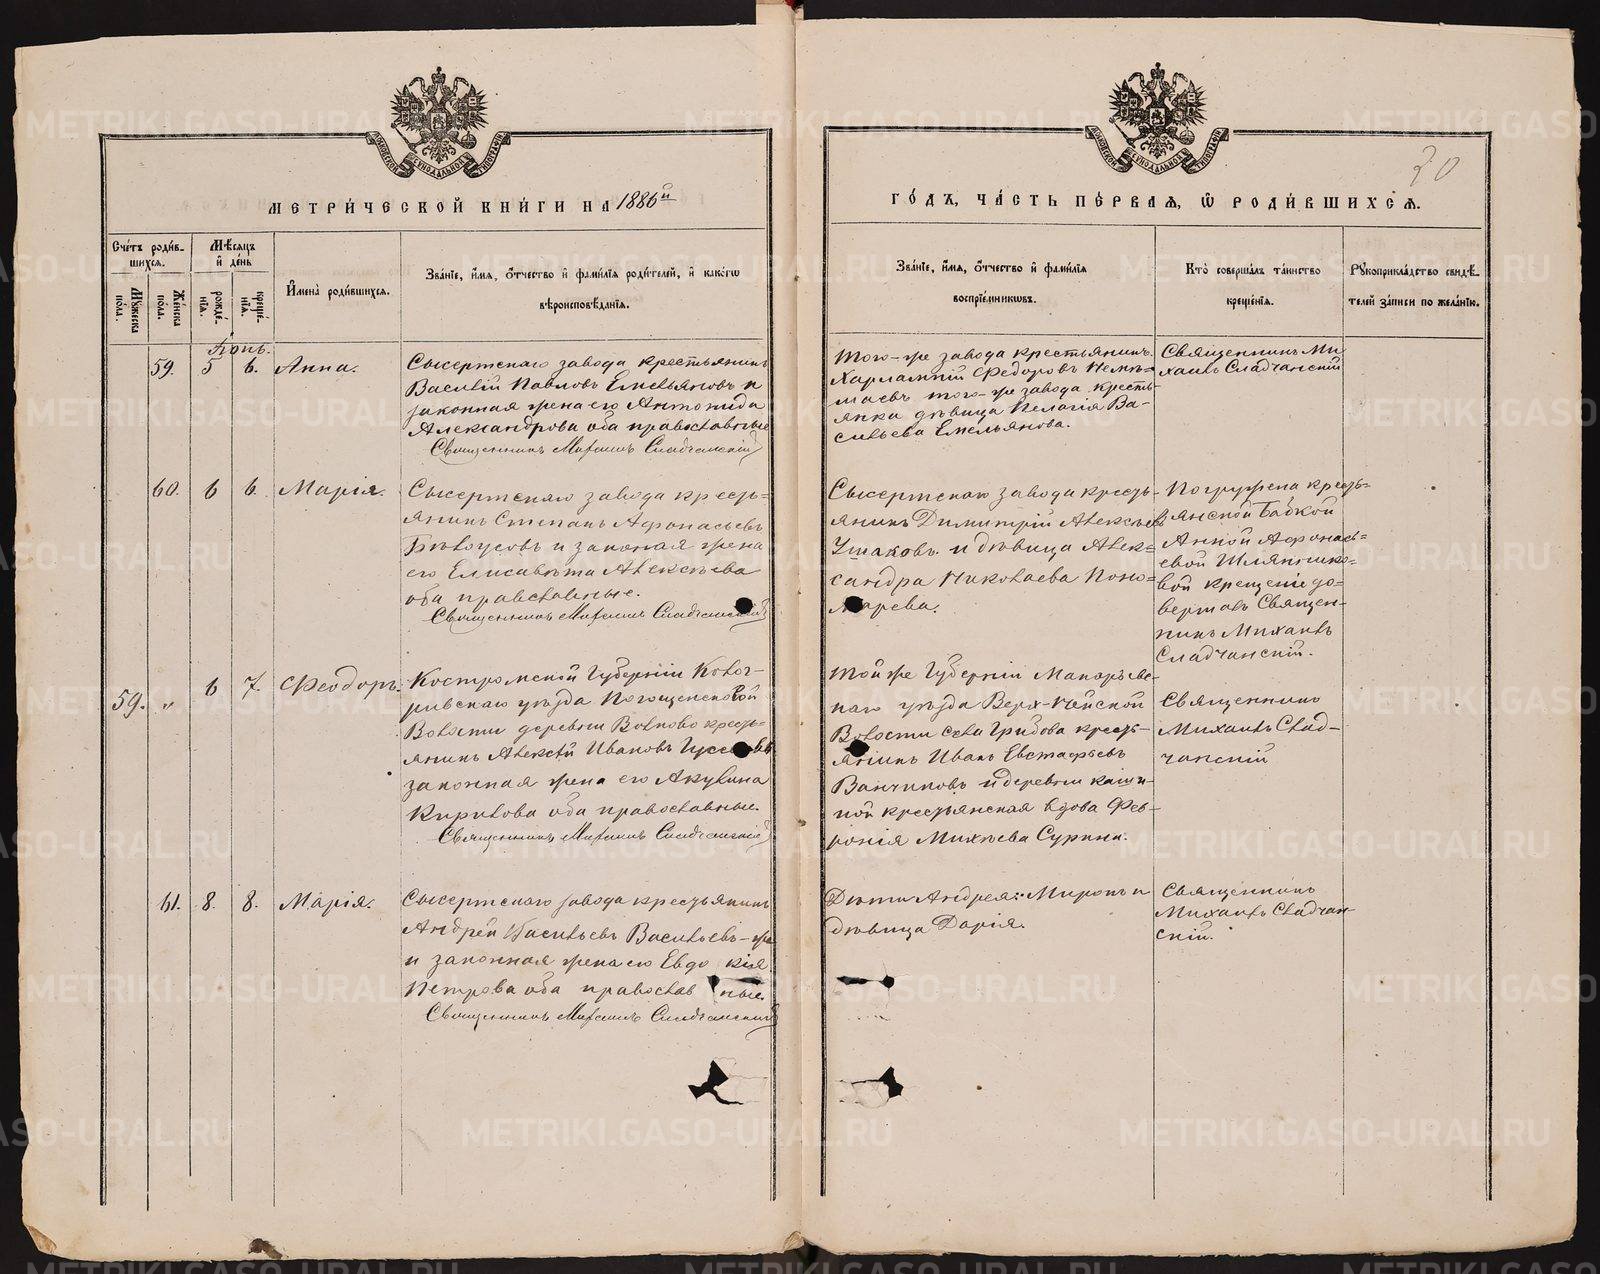 МЕТРИ́ЧЕСКОЙ КНИ́ГИ НА 1886й
Сче́тъ роди́в-
шихся.
Му́жеска
по́ла.
Же́нска
по́ла.
Мѣ́сяцъ
и де́нь
рожде́-
нїя.
креще́-
нїя.
И́мена̀ роди́вшихся.
Зва́нїе, и́мя, о́тчество и фами́лїя роди́телей, и како́гѡ
вѣроисповѣ́данїя.
59. 5 6. Анна.
Сысертскаго завода крестьянинъ
Василій Павловъ Емельяновъ и
законная жена его Антонида
Александрова оба православные
Священникъ Михаилъ Сладчанскій
60. 6 6. Марія.
Сысертскаго завода кресть-
янинъ Степанъ Афонасьевъ
Бѣлоусовъ и законая жена
его Елисавѣта Алексѣева
оба православные.
Священникъ Михаилъ Сладчанскій
59. " 6 7. Феодоръ.
Костромской Губерніи Колог-
ривскаго уѣзда
Волости деревни Волково кресть-
янинъ Алексѣй Ивановъ
законная жена его Акулина
Кирилова оба православные.
Священникъ Михаилъ Сладчанскій
61. 8. 8. Марія.
Сысертскаго завода крестьянинъ
Андрей Васильевъ Васильевъ-же
и законная жена его Евдокія
Петрова оба православные.
Священникъ Михаилъ Сладчанскій
20
ГО́ДЪ, ЧА́СТЬ ПЕ́РВАЯ, Ѡ РОДИ́ВШИХСЯ.
Зва́нїе, и́мя, о́тчество и фами́лїя
воспрїе́мникѡвъ.
Кто̀ соверша́лъ та́инство
креще́нїя.
Рꙋкоприкла́дство свидѣ́-
телей за́писи по жела́нїю.
Того-же завода крестьянинъ
Харлампій Федоровъ
того-же завода кресть-
янка дѣвица Пелагія Ва-
сильева Емельянова.
Священникъ Ми
хаилъ Сладчанскій
Сысертскаго завода кресть-
янинъ Димитрій Алексѣевъ
Ушаковъ и дѣвица Алек-
сандра Николаева Поно-
марева.
Погружена кресть-
янской бабкой
Анной Афонась-
евой Шляпнико-
вой крещеніе до-
вершалъ Священ-
никъ Михаилъ
Сладчанскій.
Той же Губерніи Макарьев-
скаго уѣзда
Волости села Гридова кресть-
янинъ Иванъ Евстафьевъ
Ванчиковъ и деревни
кой крестьянская вдова Фев-
ронія Михѣева
Священникъ
Михаилъ Слад-
чанскій
Дѣти Андрея: Миронъ и
дѣвица Дарія.
Священникъ
Михаилъ Сладчан-
скій.